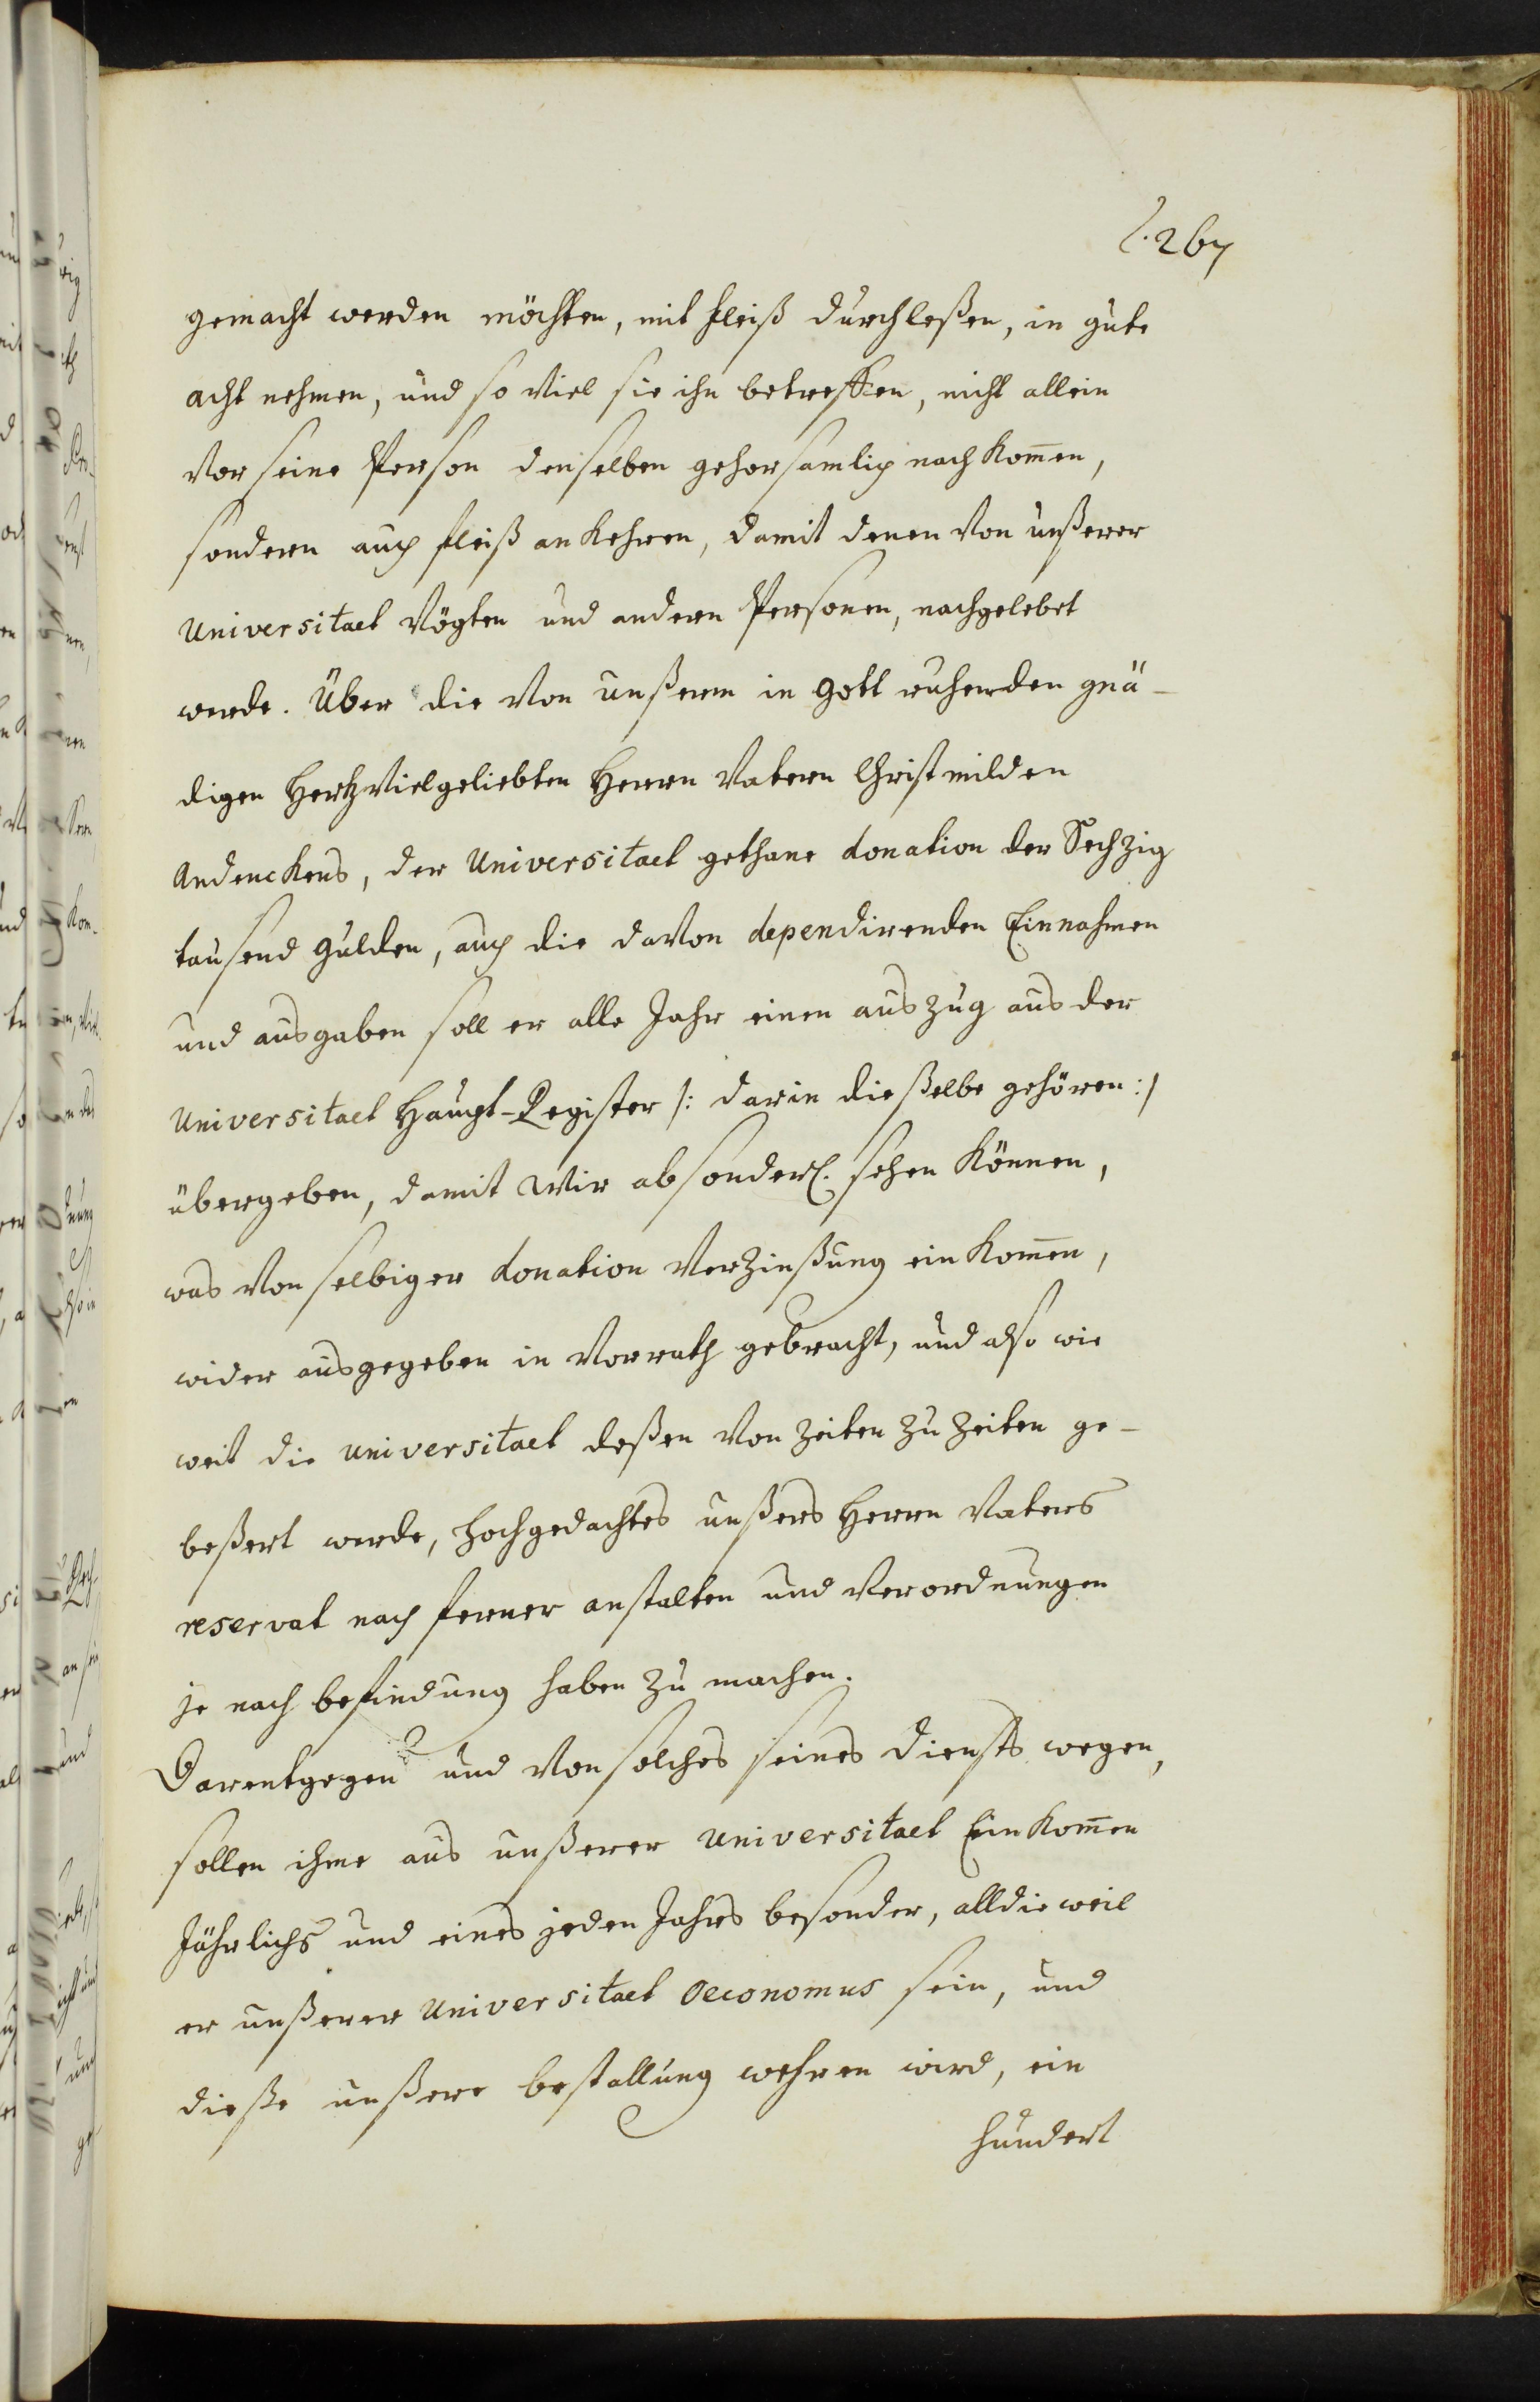 l. 267
gemacht werden möchten, mit fleiß durchleßen, in gute
acht nehmen, und so viel sie ihn betreffen, nicht allein
vor seine Person denselben gehorsamlich nach kom̄en,
sondern auch fleiß ankehren, damit denen von unßerer
Universitaet Vögten und andern Personen, nachgelebet
werde. Über die von unßerm in Gott ruhenden gnä-
digen Hertzvielgeliebten Herrn Vatern Christmilden
Andenckens, der Universitaet gethane donation der Sechzig
tausend gulden, auch die davon dependirenden Einnahmen
und ausgaben soll er alle Jahr einen auszug aus der
Universitaet Haupt-Register /: darin dießelbe gehören :/
übergeben, damit Wir absonderl. sehen können,
was von selbiger donation Verzinßung ein kom̄en,
wider ausgegeben in Vorrath gebracht, und also wie
weit die universitaet deßen von Zeiten zu Zeiten ge-
beßert werde, hochgedachtes unßers Herrn Vaters
reservat nach ferner anstalten und Verordnungen
je nach befindung haben zu machen.
Darentgegen und von solches seines diensts wegen,
sollen ihme aus unßerer Universitaet Einkom̄en
Jährlichs und eines jeden Jahrs besonder, alldieweil
er unßerer Universitaet Oeconomus sein, und
dieße unßere bestallung wehren wird, ein
hundert